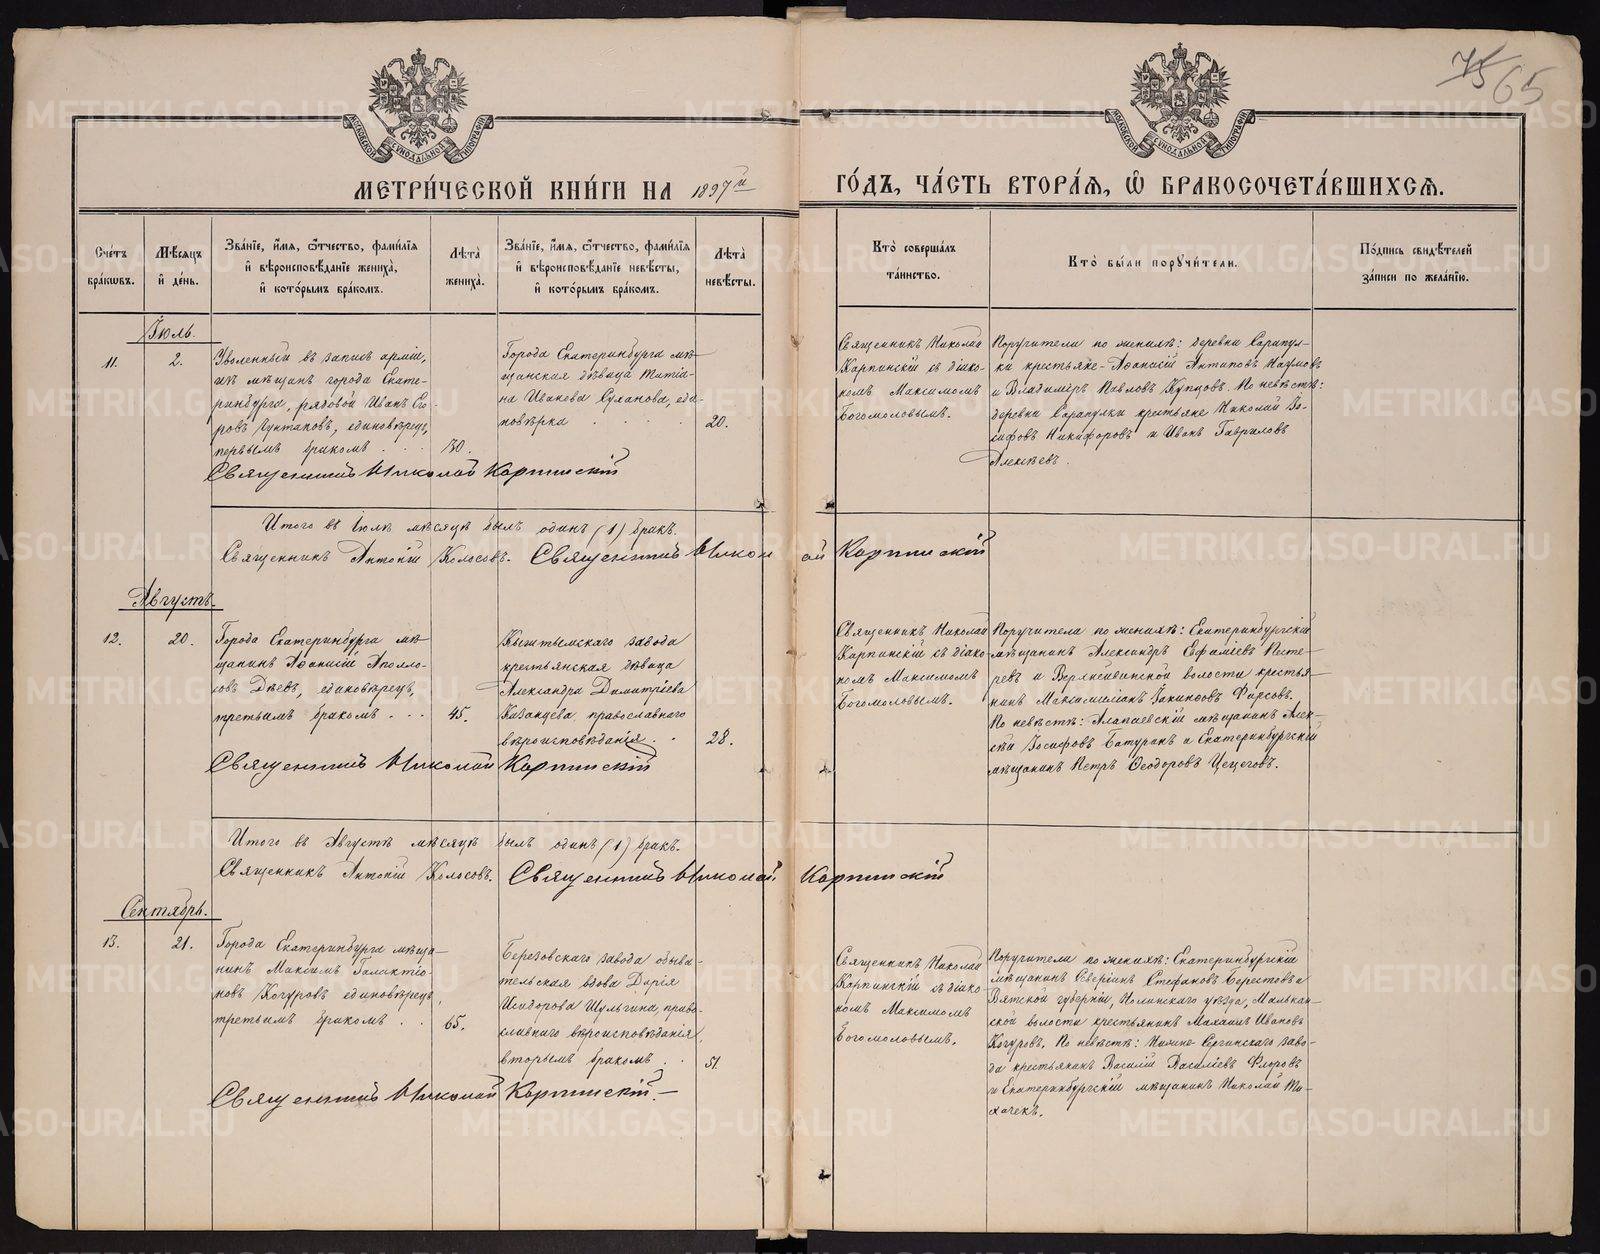 75 65
МЕТРИ́ЧЕСКОЙ КНИ́ГИ НА 1897й
ГО́ДЪ, ЧА́СТЬ ВТОРА́Ѧ, Ѽ БРАКОСОЧЕТА́ВШИХСѦ.
Сче́тъ бра́кѡвъ.
Мѣ́сѧцъ и҆ де́нь.
Зва́нїе, и҆́мѧ, ѻ҆́тчество, фами́лїѧ
и҆ вѣроисповѣ́данїе жениха̀,
и҆ кото́рымъ бра́комъ.
Лѣта̀ жениха̀.
Зва́нїе, и҆́мѧ, ѻ҆́тчество, фами́лїѧ
и҆ вѣроисповѣ́данїе невѣ́сты,
и҆ кото́рымъ бра́комъ.
Лѣта̀ невѣ́сты.
Кто̀ соверша́лъ
та́инство.
Кто̀ бы́ли порꙋчи́тели.
По́дпись свидѣ́телей
за́писи по жела́нїю.
Іюль.
11.
2.
Уволенный въ запасъ арміи,
изъ мѣщанъ города Екате-
ринбурга, рядовой Иванъ Его-
ровъ единовѣрецъ,
первымъ бракомъ . . .
30.
Города Екатеринбурга мѣ-
щанская дѣвица Татіа-
на Иванова Суханова, еди-
новѣрка . . . .
20.
Священникъ Николай
Карпинскій съ діако-
номъ Максимомъ
Богомоловымъ.
Поручители по женихѣ: деревни Сарапул-
ки крестьяне - Аѳанасій Антиповъ Наумовъ
и Владиміръ Павловъ Купцовъ. По невѣстѣ:
деревни Сарапулки крестьяне Николай Іо-
сифовъ Никифоровъ и Иванъ Гавриловъ
Алексѣевъ.
Священникъ Николай Карпинскій
Итого въ Іюлѣ мѣсяцѣ былъ одинъ (1) бракъ.
Священникъ Антоній Колосовъ. Священникъ Николай Карпинскій
Августъ.
12.
20.
Города Екатеринбурга мѣ-
щанинъ Аѳанасій Аполло-
совъ Дѣевъ, единовѣрецъ,
третьимъ бракомъ . . .
45.
Кыштымскаго завода
крестьянская дѣвица
Александра Димитріева
Казанцева, православнаго
вѣроисповѣданія . .
28.
Священникъ Николай
Карпинскій съ діако-
номъ Максимомъ
Богомоловымъ.
Поручители по женихѣ: Екатеринбургскій
мѣщанинъ Александръ Ефаміевъ Несте-
ревъ и Верхнейвинской волости крестья-
нинъ Максимиліанъ Іакинѳовъ Фирсовъ.
По невѣстѣ: Алапаевскій мѣщанинъ Алек-
сѣй Іосифовъ Батуринъ и Екатеринбургскій
мѣщанинъ Петръ Ѳеодоровъ Цецеговъ.
Священникъ Николай Карпинскій
Итого въ Августѣ мѣсяцѣ былъ одинъ (1) бракъ.
Священникъ Антоній Колосовъ. Священникъ Николай Карпинскій
Сентябрь.
13.
21.
Города Екатеринбурга мѣща-
нинъ Максимъ Галактіо-
новъ Когуровъ единовѣрецъ,
третьимъ бракомъ . .
65.
Березовскаго завода обыва-
тельская вдова Дарія
Исидорова Шульгина, право-
славнаго вѣроисповѣданія,
вторымъ бракомъ . .
51.
Священникъ Николай
Карпинскій съ діако-
номъ Максимомъ
Богомоловымъ.
Поручители по женихѣ: Екатеринбургскій
мѣщанинъ Северіанъ Стефановъ Берестовъ и
Вятской губерніи, уѣзда, Малькан-
ской волости крестьянинъ Михаилъ Ивановъ
Когуровъ. По невѣстѣ: Нижне-Сергинскаго заво-
да крестьянинъ Василій Василіевъ Флоровъ
и Екатеринбургскій мѣщанинъ Николай Ми-
хачекъ.
Священникъ Николай Карпинскій. –